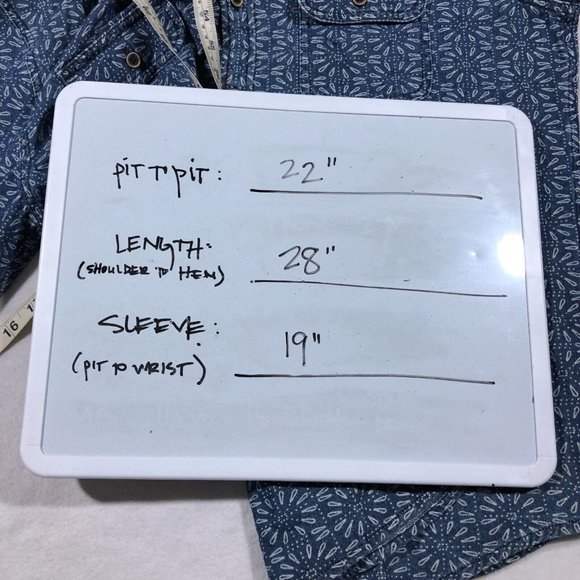 PIT TO PIT: 22"
LENGTH: 28"
(SHOULDER TO HEM)
SLEEVE: 19"
(PIT TO WRIST)
16